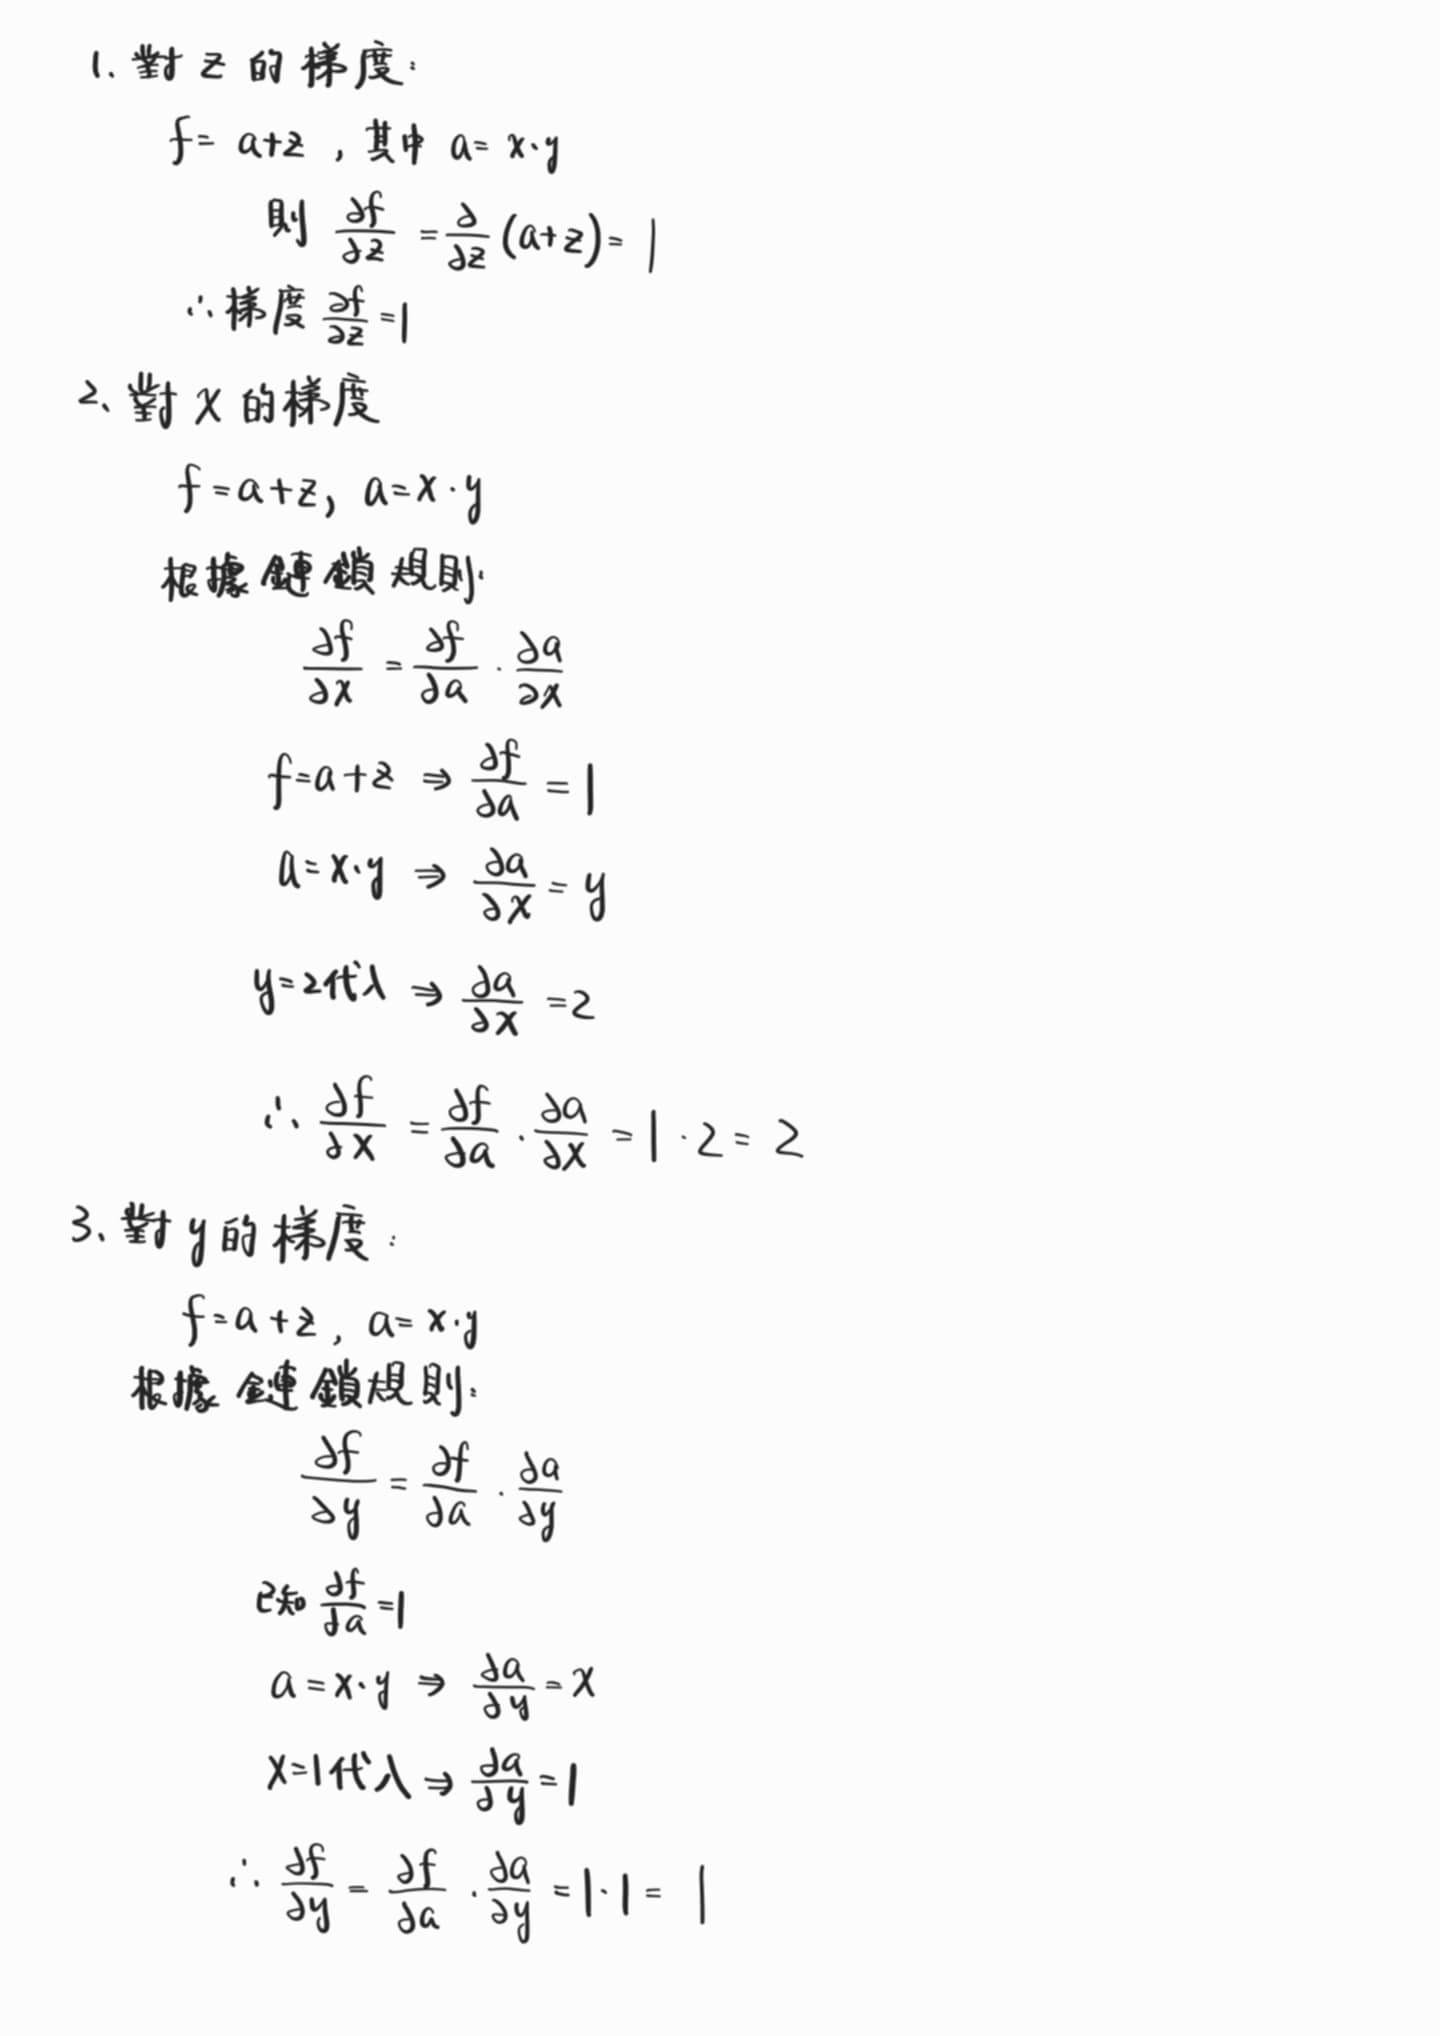 1. 對 z 的梯度:
f = a+z , 其中 a = x·y
則 ∂f/∂z = ∂/∂z (a+z) = 1
∴ 梯度 ∂f/∂z = 1
2、對 x 的梯度
f = a+z, a = x·y
根據鏈鎖規則:
∂f/∂x = ∂f/∂a · ∂a/∂x
f = a+z ⇒ ∂f/∂a = 1
a = x·y ⇒ ∂a/∂x = y
y = 2代入 ⇒ ∂a/∂x = 2
∴ ∂f/∂x = ∂f/∂a · ∂a/∂x = 1 · 2 = 2
3、對 y 的梯度:
f = a+z, a = x·y
根據鏈鎖規則:
∂f/∂y = ∂f/∂a · ∂a/∂y
已知 ∂f/∂a = 1
a = x·y ⇒ ∂a/∂y = x
x = 1代入 ⇒ ∂a/∂y = 1
∴ ∂f/∂y = ∂f/∂a · ∂a/∂y = 1·1 = 1